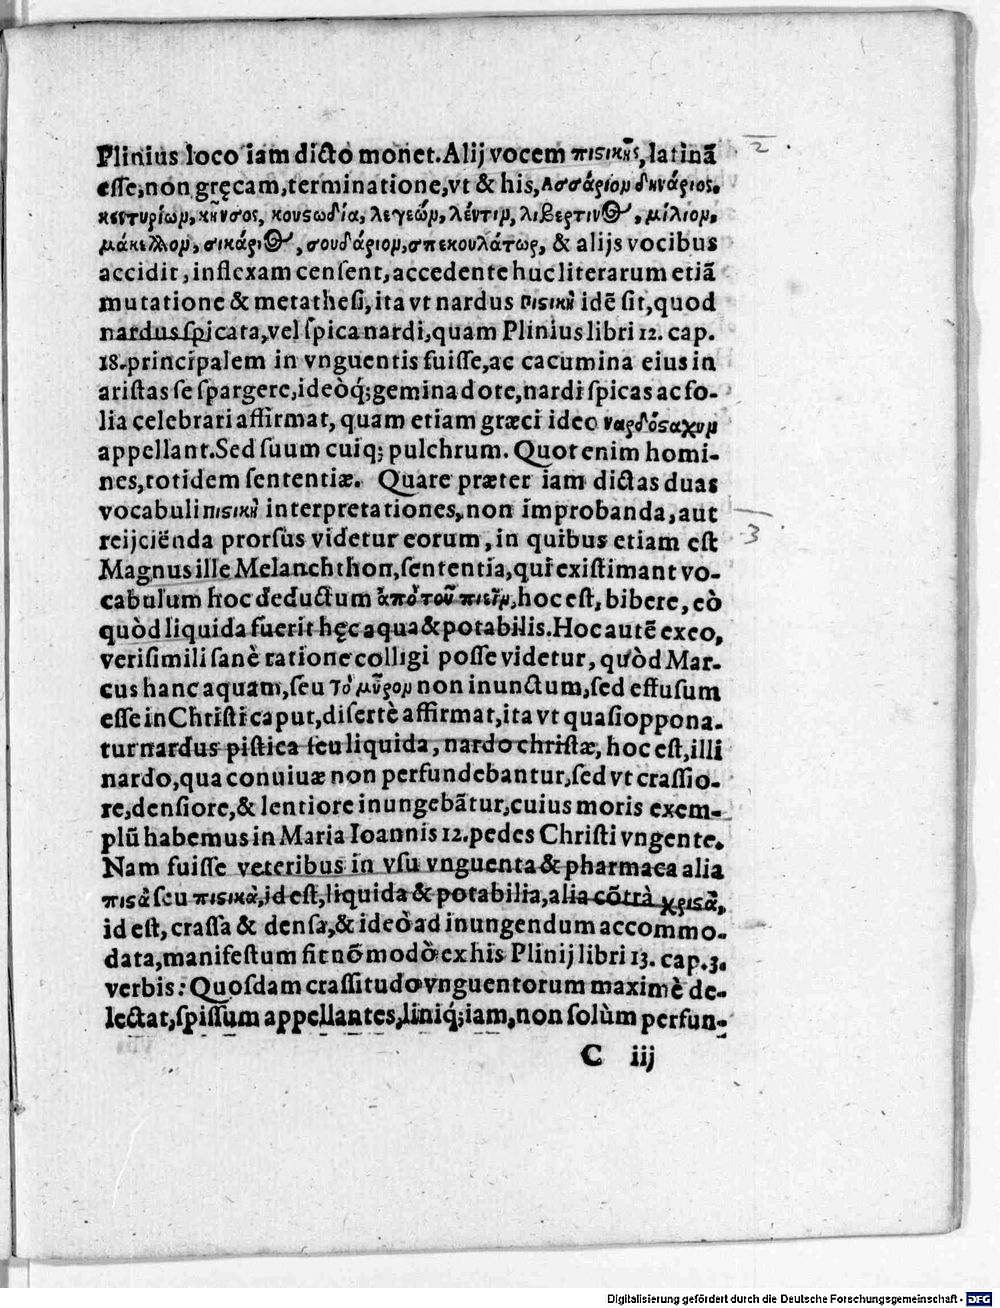 Plinius loco iam dicto monet. Alij vocem πιςικῆς, latinã
esse, non gręcam, terminatione, vt & his, Ασσάριον δηνάριος.
κεντυρίων, κῆνσος, κουςωδία, λεγεών, λέντιν, λιβερτινος, μίλιον,
μάκελλον, σικάριος, σουδάριον, σπεκουλάτωρ, & alijs vocibus
accidit, inflexam censent, accedente huc literarum etiã
mutatione & metathesi, ita vt nardus πιςικὴ idẽ sit, quod
nardus spicata, vel spica nardi, quam Plinius libri 12. cap.
18. principalem in vnguentis fuisse, ac cacumina eius in
aristas se spargere, ideòq́; gemina dote, nardi spicas ac fo-
lia celebrari affirmat, quam etiam græci ideo ναρδόςαχυν
appellant. Sed suum cuiq; pulchrum. Quot enim homi-
nes, totidem sententiæ. Quare præter iam dictas duas
vocabuli πιςικὴ interpretationes, non improbanda, aut
reijciënda prorsùs videtur eorum, in quibus etiam est
Magnus ille Melanchthon, sententia, qui existimant vo-
cabulum hoc deductum ἀπὸ τοῦ πιεῖν, hoc est, bibere, eò
quòd liquida fuerit hęc aqua & potabilis. Hoc autẽ ex eo,
verisimili sanè ratione colligi posse videtur, quòd Mar-
cus hanc aquam, seu τὸ μῦρον non inunctum, sed effusum
esse in Christi caput, disertè affirmat, ita vt quasi oppona-
tur nardus pistica seu liquida, nardo christæ, hoc est, illi
nardo, qua conuiuæ non perfundebantur, sed vt crassio-
re, densiore, & lentiore inungebãtur, cuius moris exem-
plũ habemus in Maria Ioannis 12. pedes Christi vngente.
Nam fuisse veteribus in vsu vnguenta & pharmaca alia
πιςὰ seu πιςικὰ, id est, liquida & potabilia, alia cõtrà χριςὰ,
id est, crassa & densa, & ideò ad inungendum accommo-
data, manifestum fit nõ modò ex his Plinij libri 13. cap. 3.
verbis: Quosdam crassitudo vnguentorum maximè de-
lectat, spissum appellantes, liniq́; iam, non solùm perfun-
C iij
2
3
Digitalisierung gefördert durch die Deutsche Forschungsgemeinschaft - DFG